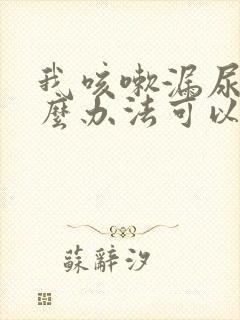 我咳嗽漏尿
麼办法可以
蘇辭汐